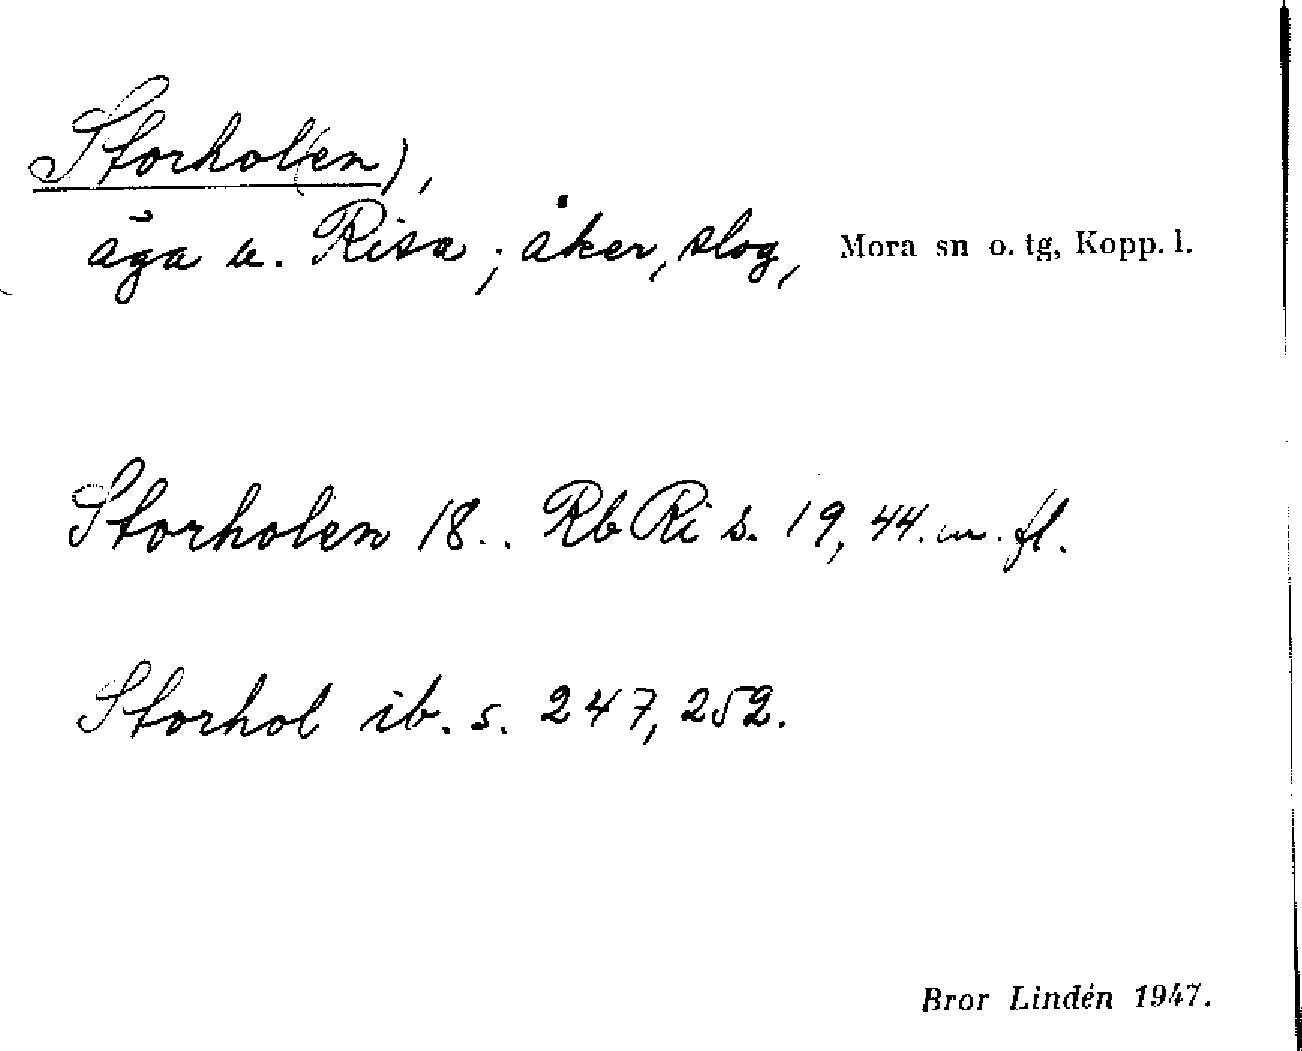 Storhol(en),
äga u. Risa; åker, slog, Mora sn o. tg, Kopp. l.
Storholen 18.. Rb Ri s. 19, 44. m. fl.
Storhol ib. s. 247, 252.
Bror Lindén 1947.